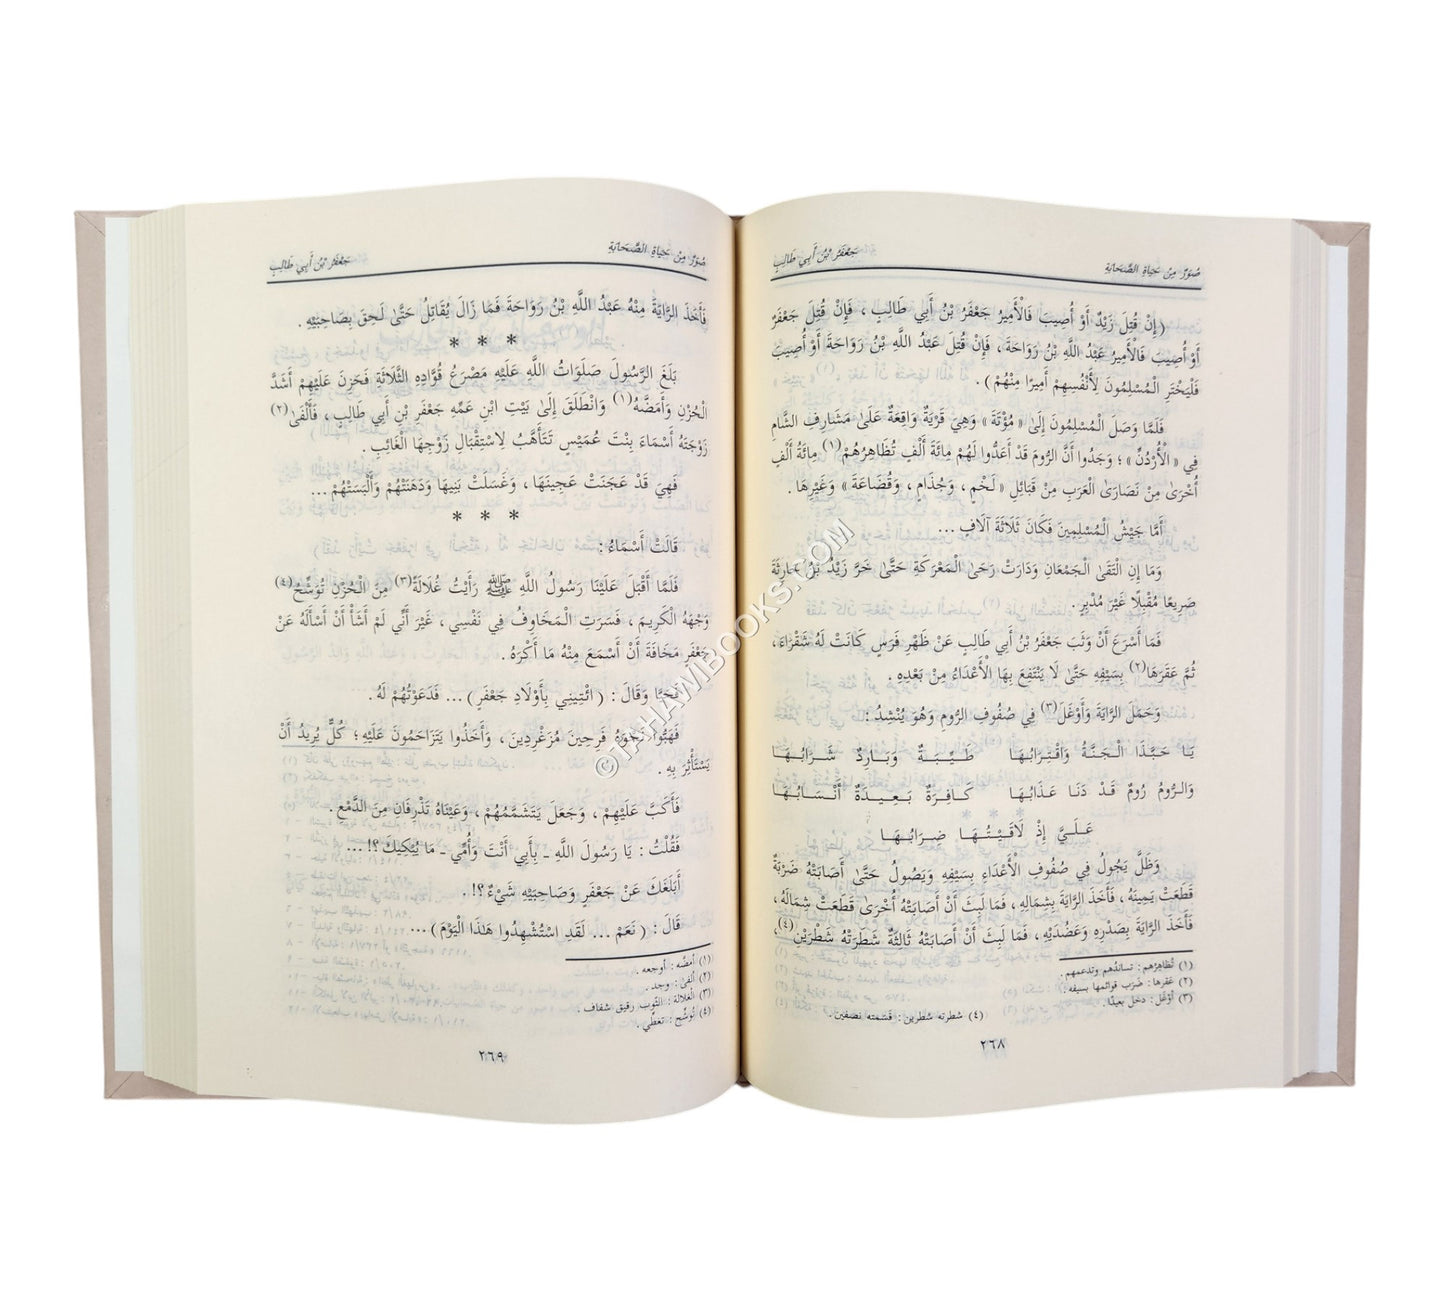 صُوَرٌ مِنْ حَيَاةِ الصَّحَابَةِ
جَعْفَرُ بْنُ أَبِي طَالِبٍ
(إِنْ قُتِلَ زَيْدٌ أَوْ أُصِيبَ فَالْأَمِيرُ جَعْفَرُ بْنُ أَبِي طَالِبٍ ، فَإِنْ قُتِلَ جَعْفَرٌ
أَوْ أُصِيبَ فَالْأَمِيرُ عَبْدُ اللَّهِ بْنُ رَوَاحَةَ ، فَإِنْ قُتِلَ عَبْدُ اللَّهِ بْنُ رَوَاحَةَ أَوْ أُصِيبَ
فَلْيَخْتَرِ الْمُسْلِمُونَ لِأَنْفُسِهِمْ أَمِيرًا مِنْهُمْ) .
فَلَمَّا وَصَلَ الْمُسْلِمُونَ إِلَىٰ « مُؤْتَةَ » وَهِيَ قَرْيَةٌ وَاقِعَةٌ عَلَىٰ مَشَارِفِ الشَّامِ
فِي « الْأُرْدُنِّ » ؛ وَجَدُوا أَنَّ الرُّومَ قَدْ أَعَدُّوا لَهُمْ مِائَةَ أَلْفٍ تُظَاهِرُهُمْ (١) مِائَةُ أَلْفٍ
أُخْرَىٰ مِنْ نَصَارَىٰ الْعَرَبِ مِنْ قَبَائِلِ « لَخْمٍ ، وَجُذَامٍ ، وَقُضَاعَةَ » وَغَيْرِهَا .
أَمَّا جَيْشُ الْمُسْلِمِينَ فَكَانَ ثَلَاثَةَ آلَافٍ ...
وَمَا إِنِ الْتَقَىٰ الْجَمْعَانِ وَدَارَتْ رَحَىٰ الْمَعْرَكَةِ حَتَّىٰ خَرَّ زَيْدُ بْنُ حَارِثَةَ
صَرِيعًا مُقْبِلًا غَيْرَ مُدْبِرٍ .
فَمَا أَسْرَعَ أَنْ وَثَبَ جَعْفَرُ بْنُ أَبِي طَالِبٍ عَنْ ظَهْرِ فَرَسٍ كَانَتْ لَهُ شَقْرَاءَ ،
ثُمَّ عَقَرَهَا (٢) بِسَيْفِهِ حَتَّىٰ لَا يَنْتَفِعَ بِهَا الْأَعْدَاءُ مِنْ بَعْدِهِ .
وَحَمَلَ الرَّايَةَ وَأَوْغَلَ (٣) فِي صُفُوفِ الرُّومِ وَهُوَ يُنْشِدُ :
يَا حَبَّذَا الْجَنَّةُ وَاقْتِرَابُهَا طَيِّبَةٌ وَبَارِدٌ شَرَابُهَا
وَالرُّومُ رُومٌ قَدْ دَنَا عَذَابُهَا كَافِرَةٌ بَعِيدَةٌ أَنْسَابُهَا
عَلَيَّ إِذْ لَاقَيْتُهَا ضِرَابُهَا
وَظَلَّ يَجُولُ فِي صُفُوفِ الْأَعْدَاءِ بِسَيْفِهِ وَيَصُولُ حَتَّىٰ أَصَابَتْهُ ضَرْبَةٌ
قَطَعَتْ يَمِينَهُ ، فَأَخَذَ الرَّايَةَ بِشِمَالِهِ ، فَمَا لَبِثَ أَنْ أَصَابَتْهُ أُخْرَىٰ قَطَعَتْ شِمَالَهُ ،
فَأَخَذَ الرَّايَةَ بِصَدْرِهِ وَعَضُدَيْهِ ، فَمَا لَبِثَ أَنْ أَصَابَتْهُ ثَالِثَةٌ شَطَرَتْهُ شَطْرَيْنِ (٤) ،
(١) تُظَاهِرُهم : تساندُهم وتدعمهم .
(٢) عقرها : ضرَب قوائمها بسيفه .
(٣) أوْغل : دخل بعيدًا .
(٤) شطرته شطرين : قسّمته نصفين .
٢٦٨
صُوَرٌ مِنْ حَيَاةِ الصَّحَابَةِ
جَعْفَرُ بْنُ أَبِي طَالِبٍ
فَأَخَذَ الرَّايَةَ مِنْهُ عَبْدُ اللَّهِ بْنُ رَوَاحَةَ فَمَا زَالَ يُقَاتِلُ حَتَّىٰ لَحِقَ بِصَاحِبَيْهِ .
* * *
بَلَغَ الرَّسُولَ صَلَوَاتُ اللَّهِ عَلَيْهِ مَصْرَعُ قُوَّادِهِ الثَّلَاثَةِ فَحَزِنَ عَلَيْهِمْ أَشَدَّ
الْحُزْنِ وَأَمَضَّهُ (١) وَانْطَلَقَ إِلَىٰ بَيْتِ ابْنِ عَمِّهِ جَعْفَرِ بْنِ أَبِي طَالِبٍ ، فَأَلْفَىٰ (٢)
زَوْجَتَهُ أَسْمَاءَ بِنْتَ عُمَيْسٍ تَتَأَهَّبُ لِاسْتِقْبَالِ زَوْجِهَا الْغَائِبِ .
فَهِيَ قَدْ عَجَنَتْ عَجِينَهَا ، وَغَسَلَتْ بَنِيهَا وَدَهَنَتْهُمْ وَأَلْبَسَتْهُمْ ...
* * *
قَالَتْ أَسْمَاءُ :
فَلَمَّا أَقْبَلَ عَلَيْنَا رَسُولُ اللَّهِ ﷺ رَأَيْتُ غُلَالَةً (٣) مِنَ الْحُزْنِ تُوَشِّحُ (٤)
وَجْهَهُ الْكَرِيمَ ، فَسَرَتِ الْمَخَاوِفُ فِي نَفْسِي ، غَيْرَ أَنِّي لَمْ أَشَأْ أَنْ أَسْأَلَهُ عَنْ
جَعْفَرٍ مَخَافَةَ أَنْ أَسْمَعَ مِنْهُ مَا أَكْرَهُ .
فَحَيَّا وَقَالَ : ( ائْتِينِي بِأَوْلَادِ جَعْفَرٍ ) ... فَدَعَوْتُهُمْ لَهُ .
فَهَبُّوا نَحْوَهُ فَرِحِينَ مُزَغْرِدِينَ ، وَأَخَذُوا يَتَزَاحَمُونَ عَلَيْهِ ؛ كُلٌّ يُرِيدُ أَنْ
يَسْتَأْثِرَ بِهِ .
فَأَكَبَّ عَلَيْهِمْ ، وَجَعَلَ يَتَشَمَّمُهُمْ ، وَعَيْنَاهُ تَذْرِفَانِ مِنَ الدَّمْعِ .
فَقُلْتُ : يَا رَسُولَ اللَّهِ - بِأَبِي أَنْتَ وَأُمِّي - مَا يُبْكِيكَ ؟! ...
أَبَلَغَكَ عَنْ جَعْفَرٍ وَصَاحِبَيْهِ شَيْءٌ ؟! .
قَالَ : ( نَعَمْ ... لَقَدِ اسْتُشْهِدُوا هَذَا الْيَوْمَ ) ...
(١) أمضّه : أوجعه .
(٢) ألفىٰ : وجد .
(٣) الغلالة : الثّوب رقيق شفاف .
(٤) تُوشّح : تغطّي .
٢٦٩
©TAHAMBOOKS.COM